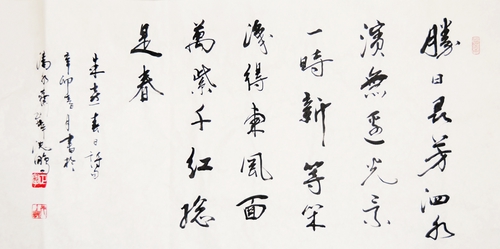 勝日尋芳泗水
濱無邊光景
一時新等閒
識得東風面
萬紫千紅總
是春
朱熹春日詩
辛卯春月書於
沈鵬